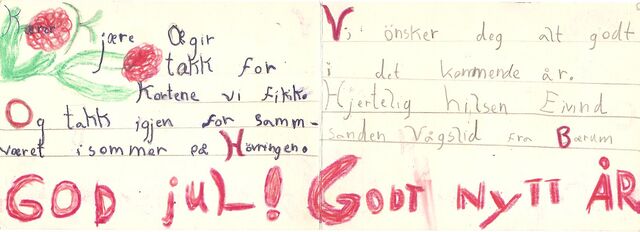 Kjære Ægir
takk for
kortene vi fikik.
Og takk igjen for samm-
været isommer på Høvringen.
GOD JUL!
Vi ønsker deg alt godt
i det kommende år.
Hjertelig hilsen Eivind
sanden Vågslid fra Bærum
GODT NYTT ÅR